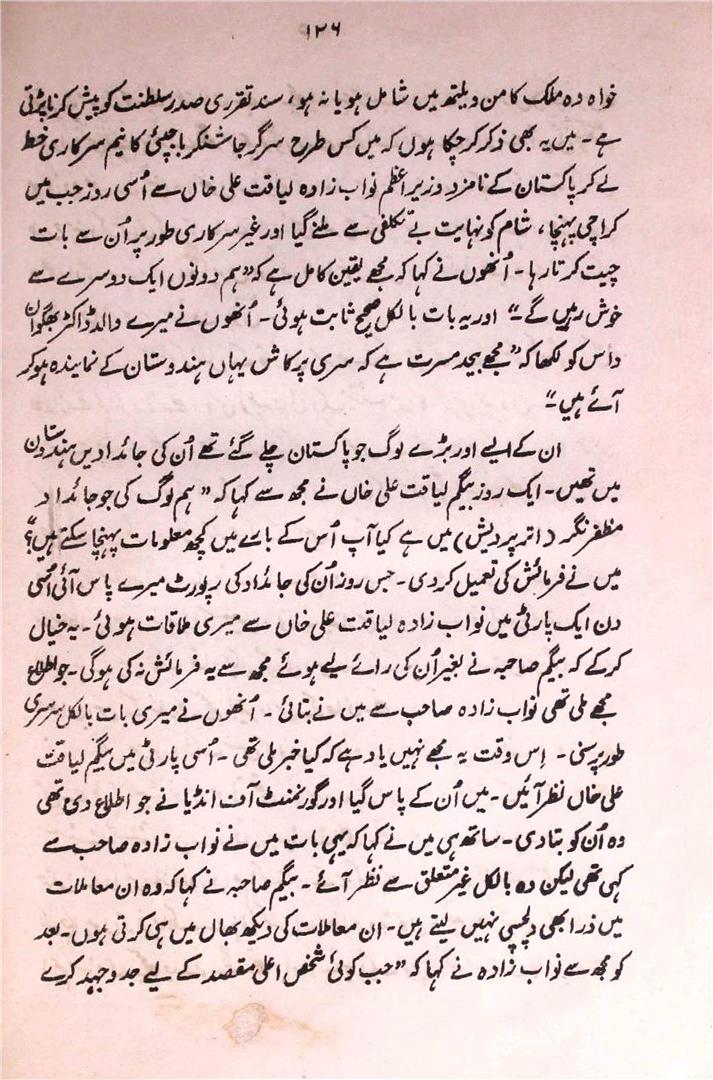 ۱۲۶
خواہ وہ ملک کامن ویلتھ میں شامل ہو یا نہ ہو، سند تقرری صدر سلطنت کو پیش کرنا پڑتی
ہے۔ میں یہ بھی ذکر کر چکا ہوں کہ میں کس طرح سر گرجا شنکر باجپئی کا نیم سرکاری خط
لے کر پاکستان کے نامزد وزیر اعظم نواب زادہ لیاقت علی خاں سے اُسی روز جب میں
کراچی پہنچا، شام کو نہایت بے تکلفی سے ملنے گیا اور غیر سرکاری طور پر اُن سے بات
چیت کرتا رہا۔ اُنھوں نے کہا کہ مجھے یقین کامل ہے کہ ”ہم دونوں ایک دوسرے سے
خوش رہیں گے۔“ اور یہ بات بالکل صحیح ثابت ہوئی۔ اُنھوں نے میرے والد ڈاکٹر بھگوان
داس کو لکھا کہ ”مجھے بیحد مسرت ہے کہ سری پرکاش یہاں ہندوستان کے نمایندہ ہو کر
آئے ہیں۔“
ان کے ایسے اور بڑے لوگ جو پاکستان چلے گئے تھے اُن کی جائدادیں ہندوستان
میں تھیں۔ ایک روز بیگم لیاقت علی خاں نے مجھ سے کہا کہ ”ہم لوگ کی جو جائداد
مظفر نگر (اتر پردیش) میں ہے کیا آپ اُس کے بارے میں کچھ معلومات پہنچا سکتے ہیں؟“
میں نے فرمائش کی تعمیل کر دی۔ جس روز اُن کی جائداد کی رپورٹ میرے پاس آئی اُسی
دن ایک پارٹی میں نواب زادہ لیاقت علی خاں سے میری ملاقات ہوئی۔ یہ خیال
کر کے کہ بیگم صاحبہ نے بغیر اُن کی رائے لیے ہوئے مجھ سے یہ فرمائش نہ کی ہوگی۔ جو اطلاع
مجھے ملی تھی نواب زادہ صاحب سے میں نے بتائی۔ اُنھوں نے میری بات بالکل سرسری
طور پر سنی۔ اِس وقت یہ مجھے نہیں یاد ہے کہ کیا خبر ملی تھی۔ اُسی پارٹی میں بیگم لیاقت
علی خاں نظر آئیں۔ میں اُن کے پاس گیا اور گورنمنٹ آف انڈیا نے جو اطلاع دی تھی
وہ اُن کو بتا دی۔ ساتھ ہی میں نے کہا کہ یہی بات میں نے نواب زادہ صاحب سے
کہی تھی لیکن وہ بالکل غیر متعلق سے نظر آئے۔ بیگم صاحبہ نے کہا کہ وہ ان معاملات
میں ذرا بھی دلچسپی نہیں لیتے ہیں۔ ان معاملات کی دیکھ بھال میں ہی کرتی ہوں۔ بعد
کو مجھ سے نواب زادہ نے کہا کہ ”جب کوئی شخص اعلیٰ مقصد کے لیے جد وجہد کرے